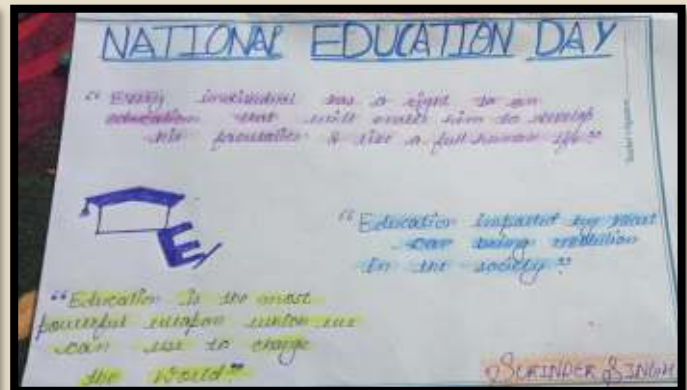 NATIONAL EDUCATION DAY
“ Every individual has a right to an
education that will enable him to develop
his faculties & live a full human life ”
“ Education imparted by heart
can bring revolution
in the society ”
“ Education is the most
powerful weapon which we
can use to change
the World ”
SURINDER SINGH